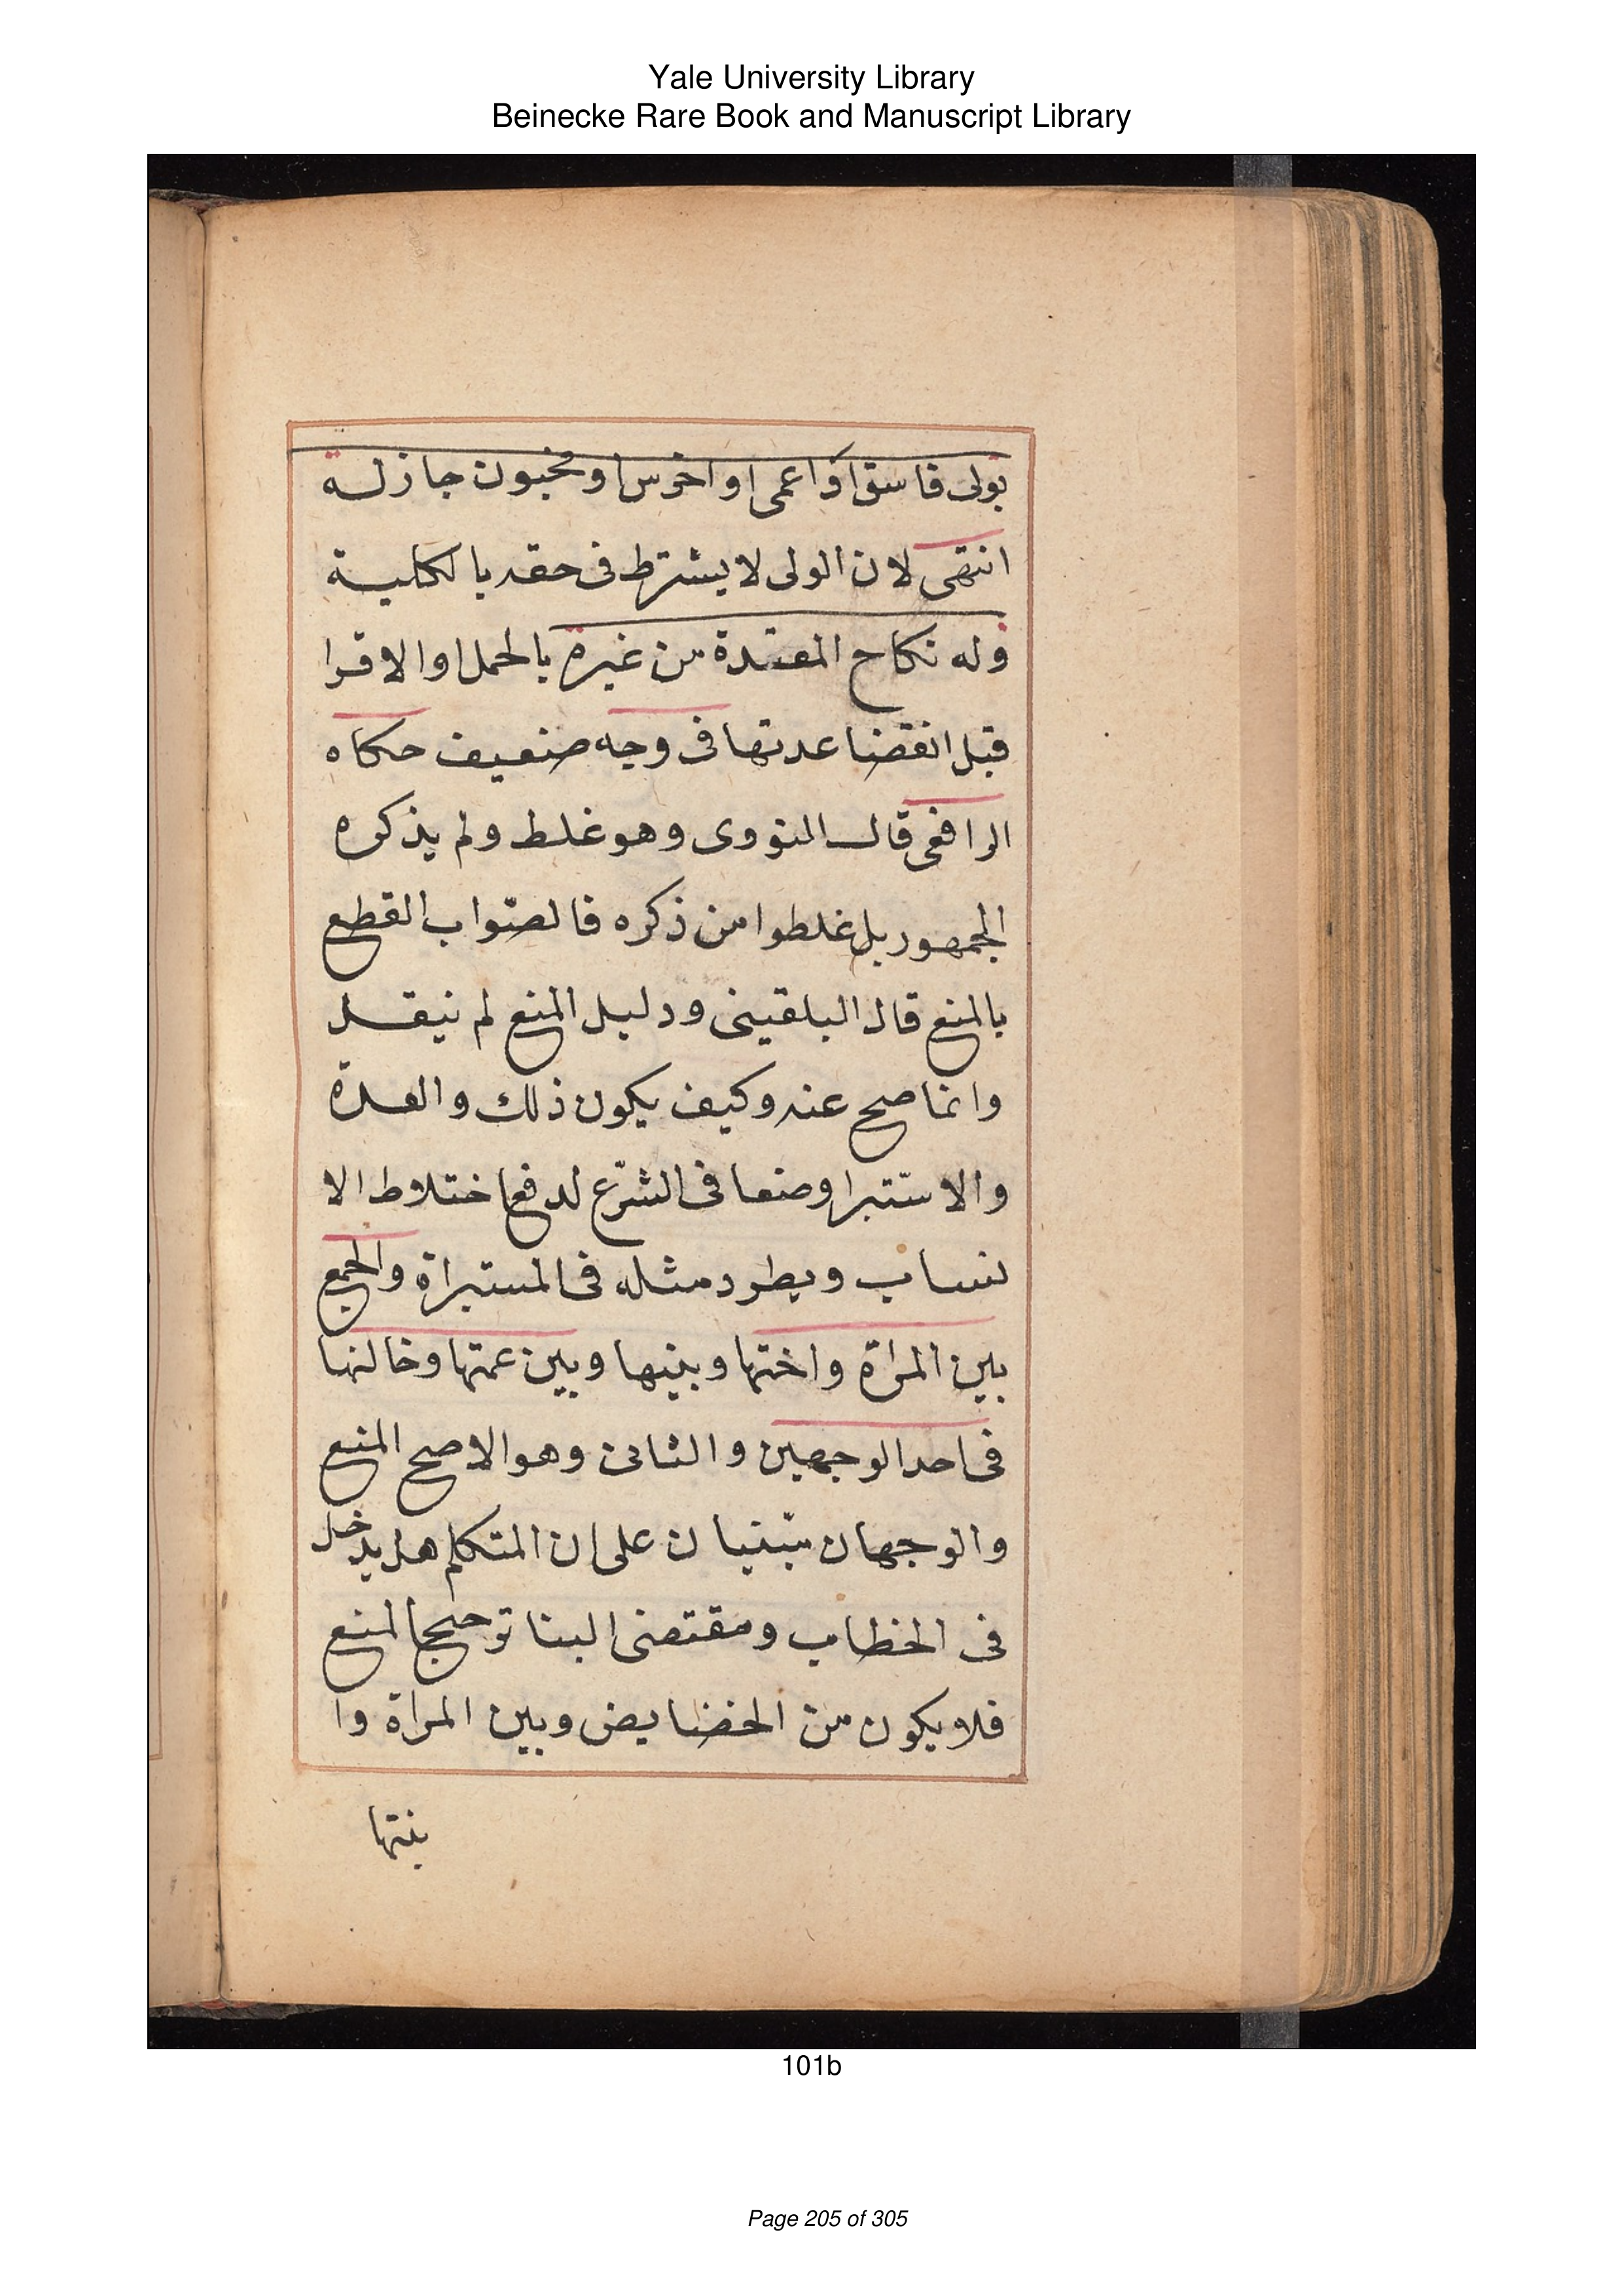 Yale University Library
Beinecke Rare Book and Manuscript Library
بولى فاسق او اعمى او اخرس او مجنون جاز له
انتهى لان الولى لا يشترط فى حقه بالكلية
وله نكاح المعتدة من غيره بالحمل او الاقرا
قبل انقضا عدتها فى وجه ضعيف حكاه
الرافعى قال النووى وهو غلط ولم يذكره
الجمهور بل غلطوا من ذكره فالصواب القطع
بالمنع قال البلقينى ودليل المنع لم ينقل
وانما صح عنه وكيف يكون ذلك والعدة
والاستبرا وضعا فى الشرع لدفع اختلاط الا
نساب ويطرد مثله فى المستبراة والجمع
بين المراة واختها وبينها وبين عمتها وخالتها
فى احد الوجهين والثانى وهو الاصح المنع
والوجهان مبنيان على ان المتكلم هل يدخل
فى الخطاب ومقتضى البنا المنع
فلا يكون من الخصايص وبين المراة وا
بنتها
101b
Page 205 of 305